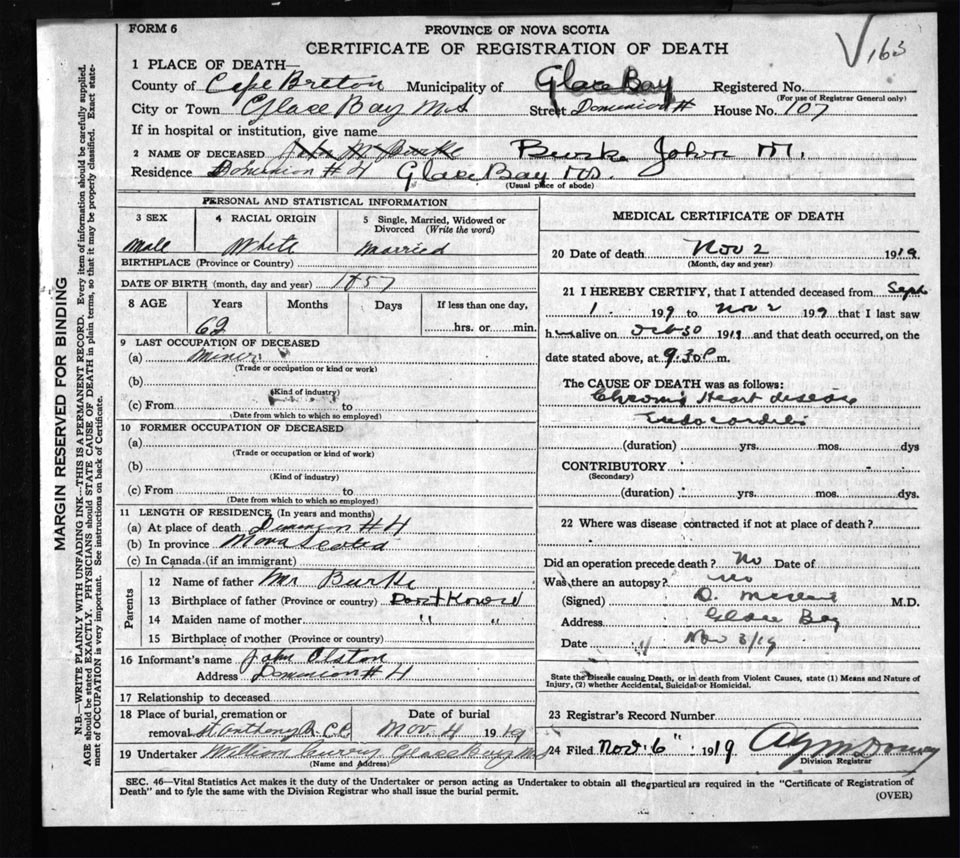 FORM 6
PROVINCE OF NOVA SCOTIA
CERTIFICATE OF REGISTRATION OF DEATH
163
1 PLACE OF DEATH—
County of Cape Breton Municipality of Glace Bay Registered No.
(For use of Registrar General only)
City or Town Glace Bay N.S Street Dominion # House No. 107
If in hospital or institution, give name
2 NAME OF DECEASED John M. Burke Burke John M.
Residence Dominion # 4 Glace Bay NS.
(Usual place of abode)
PERSONAL AND STATISTICAL INFORMATION
3 SEX 4 RACIAL ORIGIN 5 Single, Married, Widowed or Divorced (Write the word)
Male White Married
BIRTHPLACE (Province or Country)
DATE OF BIRTH (month, day and year) 1857
8 AGE Years Months Days If less than one day,
62 hrs. or min.
9 LAST OCCUPATION OF DECEASED
(a) Miner
(Trade or occupation or kind or work)
(b)
(Kind of industry)
(c) From to
(Date from which to which so employed)
10 FORMER OCCUPATION OF DECEASED
(a)
(Trade or occupation or kind of work)
(b)
(Kind of industry)
(c) From to
(Date from which to which so employed)
11 LENGTH OF RESIDENCE (In years and months)
(a) At place of death Dominion # 4
(b) In province Nova Scotia
(c) In Canada (if an immigrant)
Parents
12 Name of father Mr Burke
13 Birthplace of father (Province or country) Dont Know
14 Maiden name of mother " "
15 Birthplace of mother (Province or country)
16 Informant's name John Clston
Address Dominion # 4
17 Relationship to deceased
18 Place of burial, cremation or Date of burial
removal St Anthony R.C.C. Nov 4 1919
19 Undertaker William Curry Glace Bay NS
(Name and Address)
MEDICAL CERTIFICATE OF DEATH
20 Date of death Nov 2 1919
(Month, day and year)
21 I HEREBY CERTIFY, that I attended deceased from Sept
1. 199 to Nov 2 199 that I last saw
h alive on Oct 30 1919 and that death occurred, on the
date stated above, at 9.30 P.m.
The CAUSE OF DEATH was as follows:
Chronic Heart disease
Endocarditis
(duration) yrs. mos. dys
CONTRIBUTORY
(Secondary)
(duration) yrs. mos. dys.
22 Where was disease contracted if not at place of death?
Did an operation precede death? No Date of
Was there an autopsy? No
(Signed) D. M.D.
Address Glace Bay
Date Nov 3/19
State the Disease causing Death, or in death from Violent Causes, state (1) Means and Nature of
Injury, (2) whether Accidental, Suicidal or Homicidal.
23 Registrar's Record Number
24 Filed Nov. 6" 1919
Division Registrar
SEC. 46—Vital Statistics Act makes it the duty of the Undertaker or person acting as Undertaker to obtain all the particulars required in the "Certificate of Registration of
Death" and to fyle the same with the Division Registrar who shall issue the burial permit.
(OVER)
MARGIN RESERVED FOR BINDING
N.B.—WRITE PLAINLY WITH UNFADING INK—THIS IS A PERMANENT RECORD. Every item of information should be carefully supplied.
AGE should be stated EXACTLY. PHYSICIANS should STATE CAUSE OF DEATH in plain terms, so that it may be properly classified. Exact state-
ment of OCCUPATION is very important. See instructions on back of Certificate.